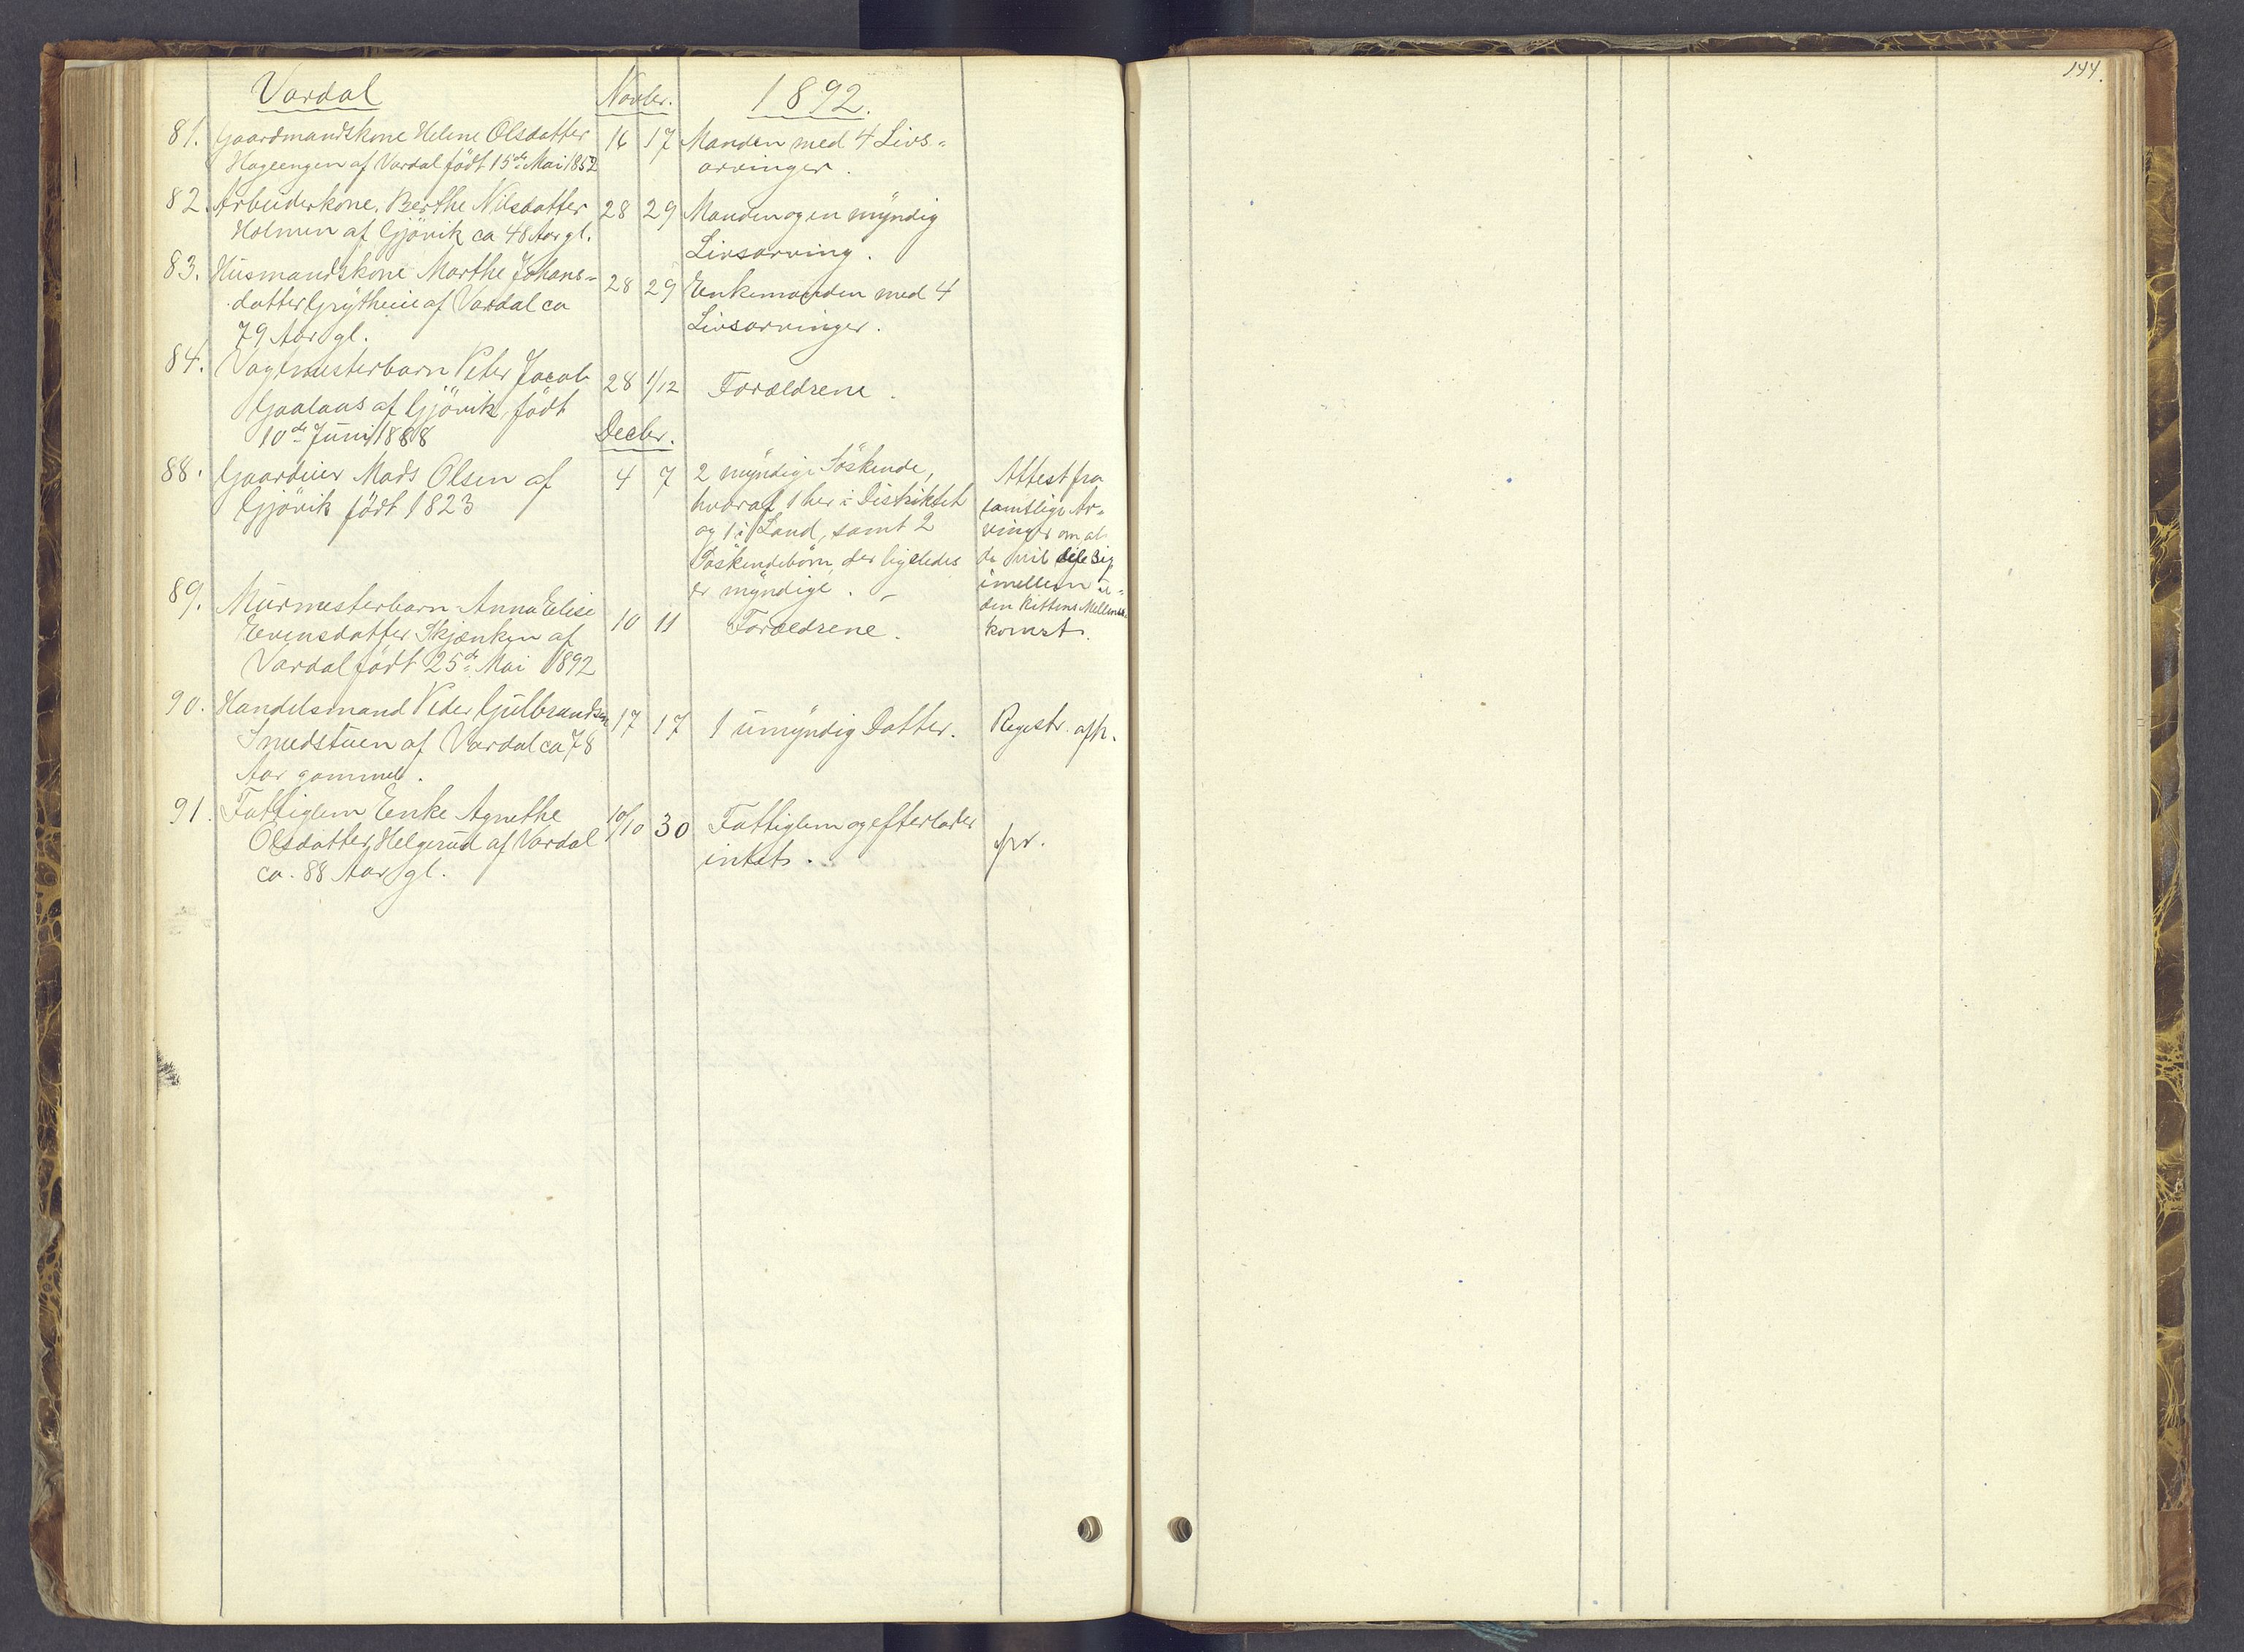 Vardal Novbr. 1892.
144.
81. Gaardmandskone Helene Olsdatter 16 17 Manden med 4 Livs-
Hageengen af Vardal født 15de Mai 1852 arvinger.
82. Arbeiderkone Berthe Nilsdatter 28 29 Manden og en myndig
Holmen af Gjövik ca 48 Aar gl. Livsarving.
83. Husmandskone Marthe Johans- 28 29 Enkemanden med 4
datter af Vardal ca Livsarvinger.
79 Aar gl.
84. Vagtmesterbarn Peter Jacob 28 1/12 Forældrene.
Gaalaas af Gjövik, født
10de Juni 1888
Decbr.
88. Gaardeier Mads Olsen af 4 7 2 myndige Söskende, Attest fra
Gjövik født 1823 hvoraf 1 her i Distriktet samtlige Ar-
og 1 i Land, samt 2 vinger om at
Söskendebörn, der ligeledes de vil dele sig
er myndige. imellem u-
den Rettens Mellem-
komst.
89. Murmesterbarn Anna Elise 10 11 Forældrene.
Evensdatter Skjænken af
Vardal født 25de Mai 1892
90. Handelsmand Peder Gulbrandsen 17 17 1 umyndig Datter. Registr. afh.
Smedstuen af Vardal ca 78
Aar gammel.
91. Fattiglem Enke Agnethe 10/10 30 Fattiglem og efterlader
Olsdatter Helgerud af Vardal intet.
ca. 88 Aar gl.